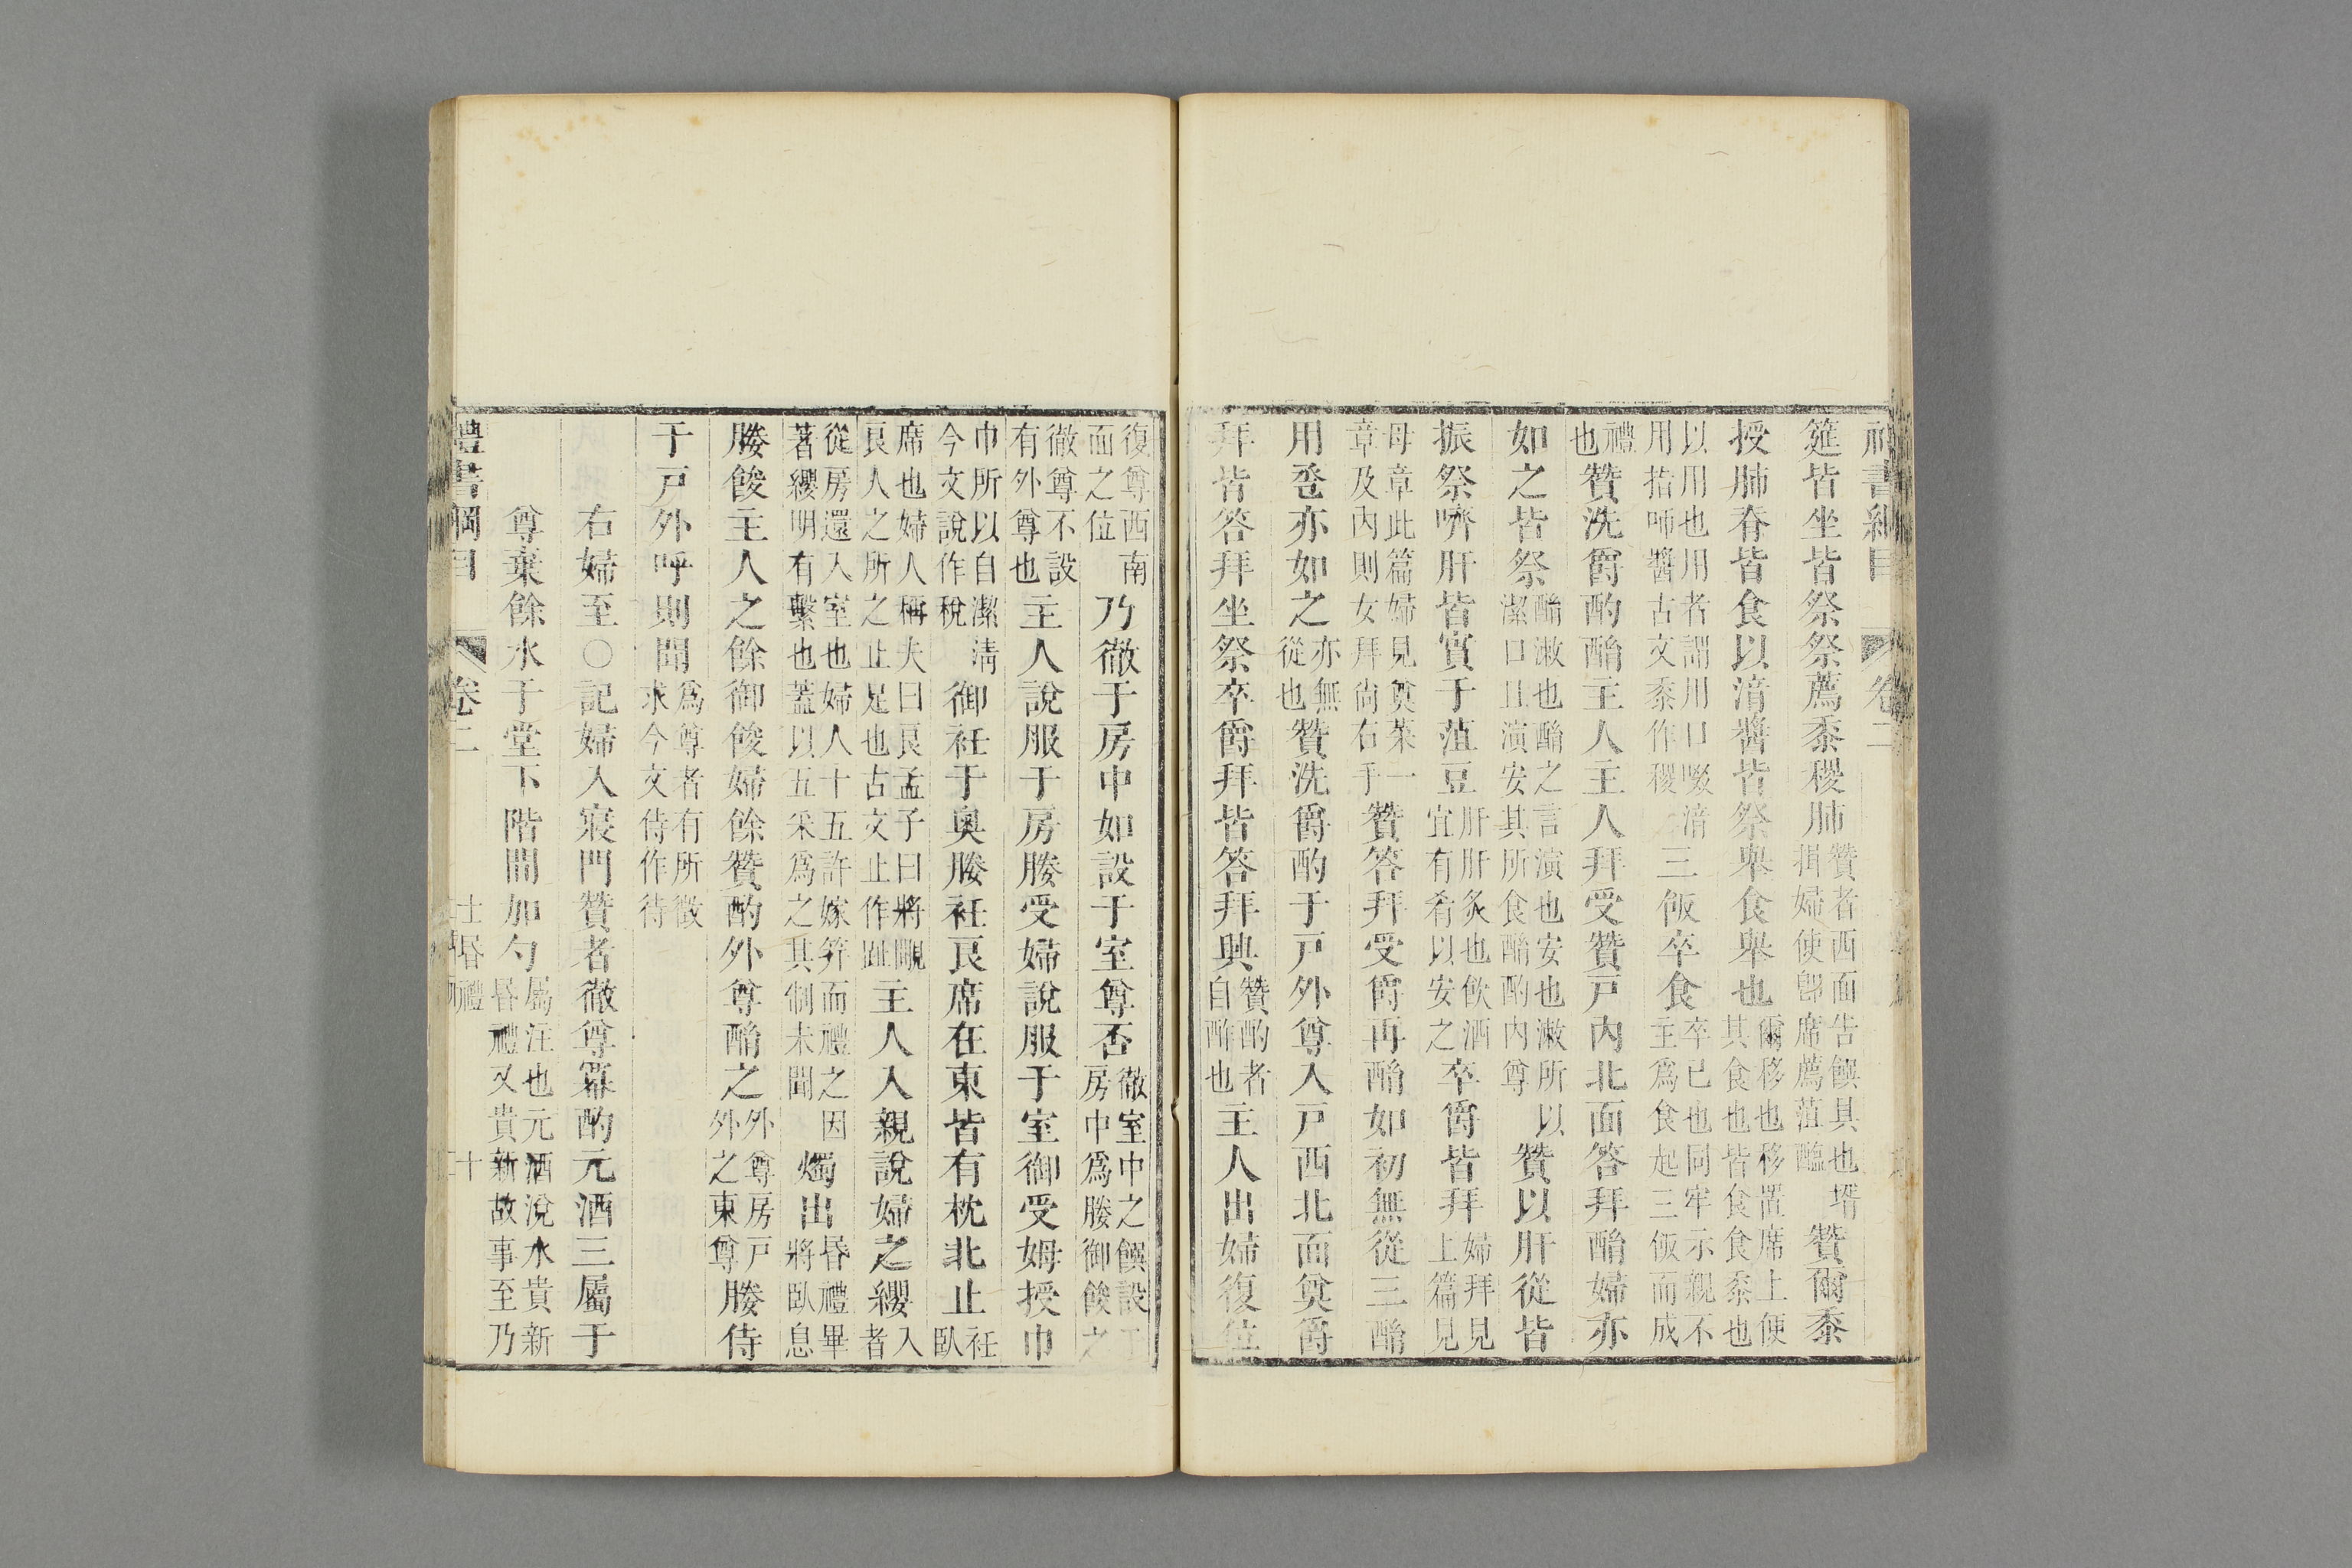 禮書綱目 卷二
筵皆坐皆祭祭薦黍稷肺贊者西面告饌具也壻揖婦使卽席薦菹醢贊爾黍
授肺脊皆食以湆醬皆祭舉食舉也爾移也移置席上便其食也皆食食黍也
以用也用者謂用口啜湆用指𠯗醬古文黍作稷三飯卒食卒已也同牢示親不主爲食起三飯而成
禮也贊洗爵酌酳主人主人拜受贊戸内北面答拜酳婦亦
如之皆祭酳漱也酳之言演也安也漱所以潔口且演安其所食酳酌内尊贊以肝從皆
振祭嚌肝皆實于菹豆肝肝炙也飮酒宜有肴以安之卒爵皆拜婦拜見上篇見
母章此篇婦見奠菜一章及内則女拜尙右手贊答拜受爵再酳如初無從三酳
用卺亦如之亦無從也贊洗爵酌于戸外尊入戸西北面奠爵
拜皆答拜坐祭卒爵拜皆答拜興贊酌者自酢也主人出婦復位
復尊西南面之位乃徹于房中如設于室尊否徹室中之饌設于房中爲媵御餕之
徹尊不設有外尊也主人說服于房媵受婦說服于室御受姆授巾
巾所以自潔淸今文說作稅御衽于奥媵衽良席在東皆有枕北止衽臥
席也婦人稱夫曰良孟子曰將覸良人之所之止足也古文止作趾主人入親說婦之纓入者
從房還入室也婦人十五許嫁笄而禮之因著纓明有繫也蓋以五采爲之其制未聞燭出昏禮畢將臥息
媵餕主人之餘御餕婦餘贊酌外尊酳之外尊房戸外之東尊媵侍
于戸外呼則聞爲尊者有所徵求今文侍作待
右婦至○記婦入寝門贊者徹尊冪酌元酒三屬于
尊棄餘水于堂下階間加勺屬注也元酒涗水貴新昏禮又貴新故事至乃
禮書綱目 卷二 士昏禮 十